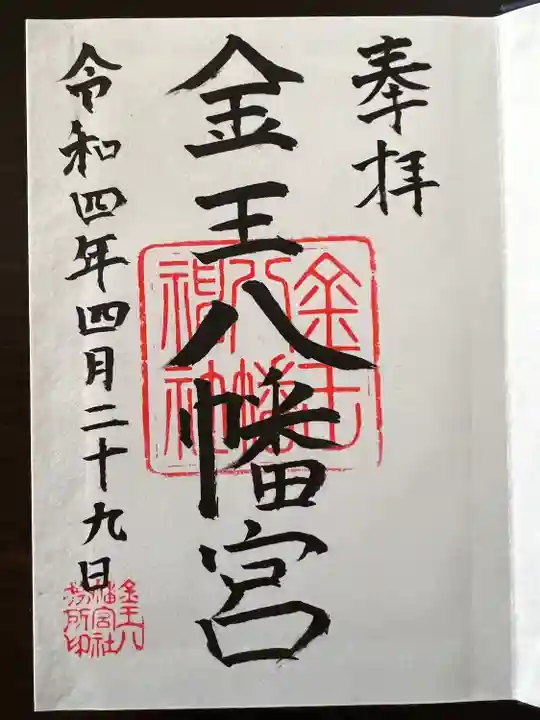 奉拝
金王八幡宮
金王
八幡
神社
令和四年四月二十九日
金王八
幡宮社
務所印